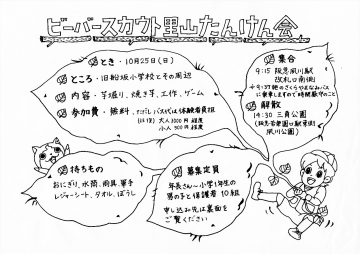 ビーバースカウト里山たんけん会
とき・10月25日(日)
ところ・旧船坂小学校とその周辺
内容・芋堀り、焼き芋、工作、ゲーム
参加費・無料、
大人1000円程度
小人500円程度
集合
9:15 阪急夙川駅
改札口南側
に乗車しますので時間厳守のこと
解散
14:30 三角公園
夙川公園)
持ちもの
おにぎり、水筒、雨具、軍手
レジャーシート、タオル、ぼうし
募集定員
年長さん〜小学1年生の
男の子と保護者 10組
申し込み先は裏面を
ご覧ください